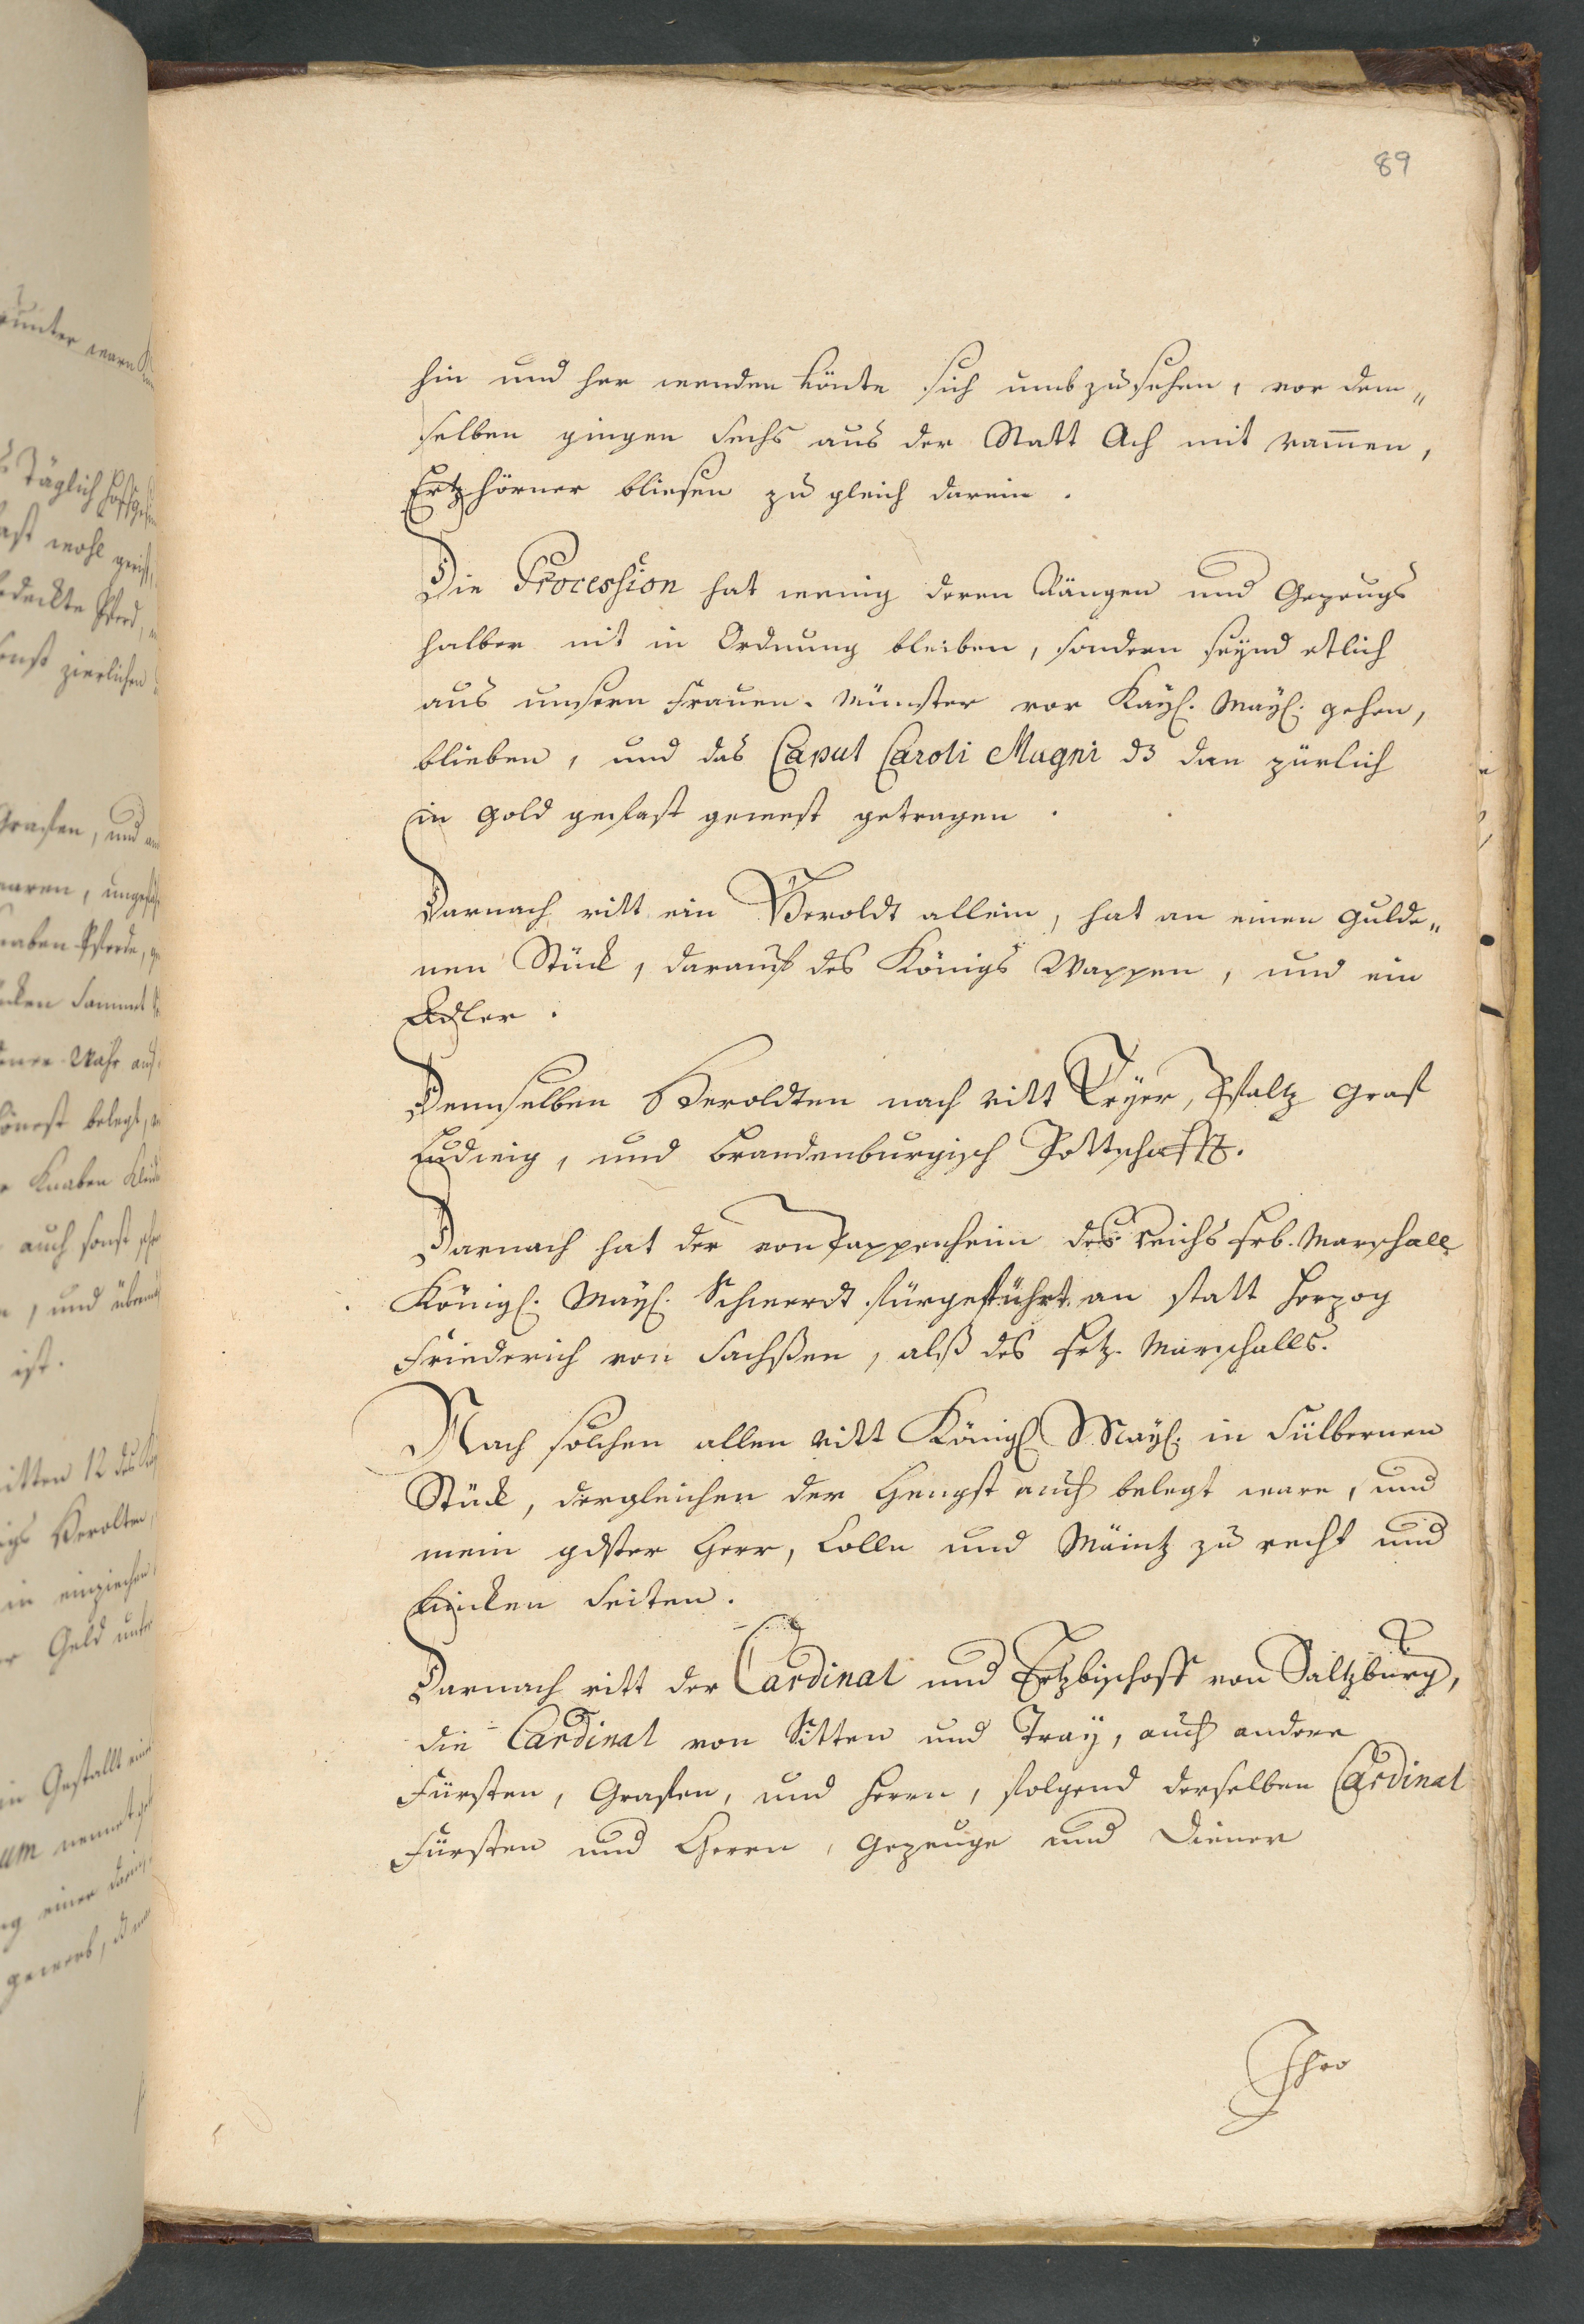 89
hin und her wenden könte sich umbzusehen, vor dem„
selben gingen Sechs aus der Statt Ach mit
Ertzhörner bliesen zu gleich darein.
Die Procession hat wenig deren Gängen und Gezeugs
halber nit in Ordnung bleiben, sondern seynd etlich
aus unsern Frauen-Münster vor Kayl. Mayl. gehen,
blieben, und das Caput Caroli Magni dz dan zürlich
in Gold gefast gewest getragen.
Darnach ritt ein Heroldt allein, hat an einen gulde„
nen Stück, darauf des Königs Wappen, und ein
Adler.
Demselben Heroldten nach ritt Tryer, Pfaltz graf
Ludwig, und brandenburgisch Pottschafft.
Darnach hat der von Pappenheim des reichs Erb-Marschall
Königl. Mayl. Schwerdt fürgeführt an statt Hertzog
Friederich von Sachßen, alß des Ertz-Marschalls.
Nach solchen allen ritt Königl. Mayl. in Silbernen
Stück, dergleichen der Hengst auch belegt ware, und
mein gdster Herr, Colln und Mäintz zu recht und
lincken Seiten.
Darnach ritt der Cardinal und Ertzbischoff von Saltzburg,
die Cardinal von Sitten und Tray, auch andere
Fürsten, Grafen, und Herrn, folgend derselben Cardinal
Fürsten und Herrn, Gezeuge und Diener
Ihro